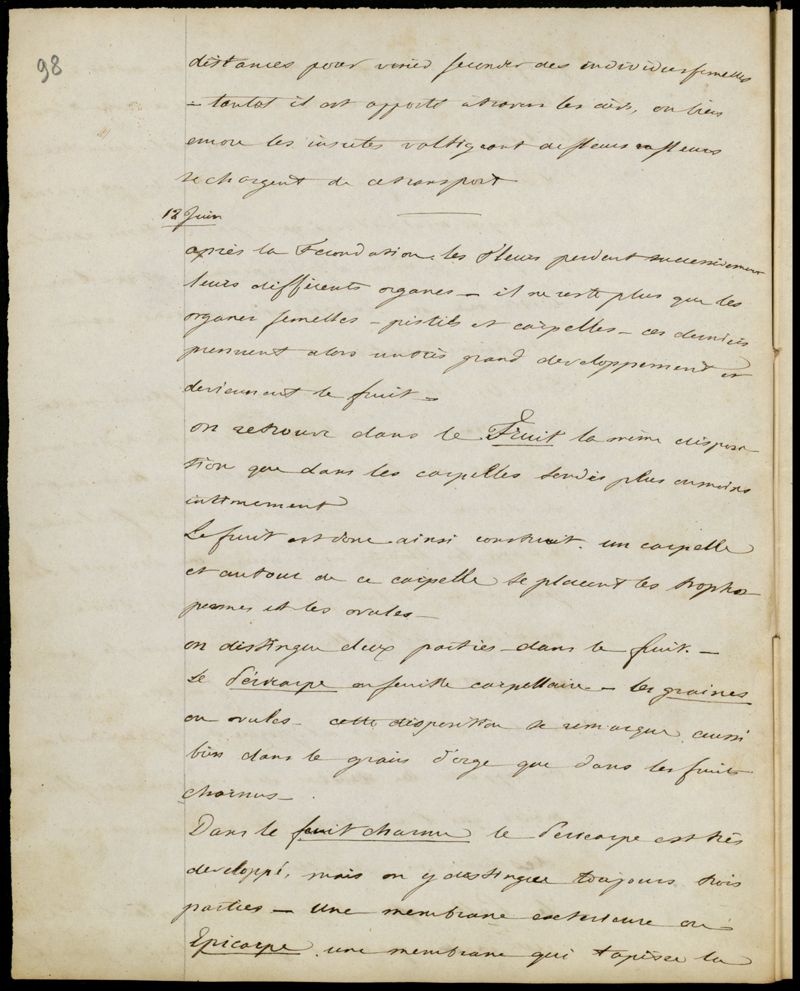 98
distances pour venir feconder des individus femelles
– tantot il est apporté à travers les airs, ou bien
encore les insectes voltigeant de fleurs en fleurs
se chargent de ce transport
12 Juin
après la Fecondation les fleurs perdent successivement
leurs différents organes – il ne reste plus que les
organes femelles – pistils et carpelles – ces derniers
prennent alors un très grand developpement et
deviennent le fruit –
on retrouve dans le Fruit la même disposi
tion que dans les carpelles soudés plus ou moins
intimement
Le fruit est donc ainsi construit. un carpelle
et autour de ce carpelle se placent les tropho
permes et les ovules –
on distingue deux parties – dans le fruit. –
Le Péricarpe ou feuille carpellaire – les graines
ou ovules – cette disposition se remarque aussi
bien dans le grain d'orge que dans les fruits
charnus –
Dans le fruit charnu le Pericarpe est très
developpé, mais on y distingue toujours trois
parties – Une membrane exterieure ou
Epicarpe, une membrane qui tapisse la